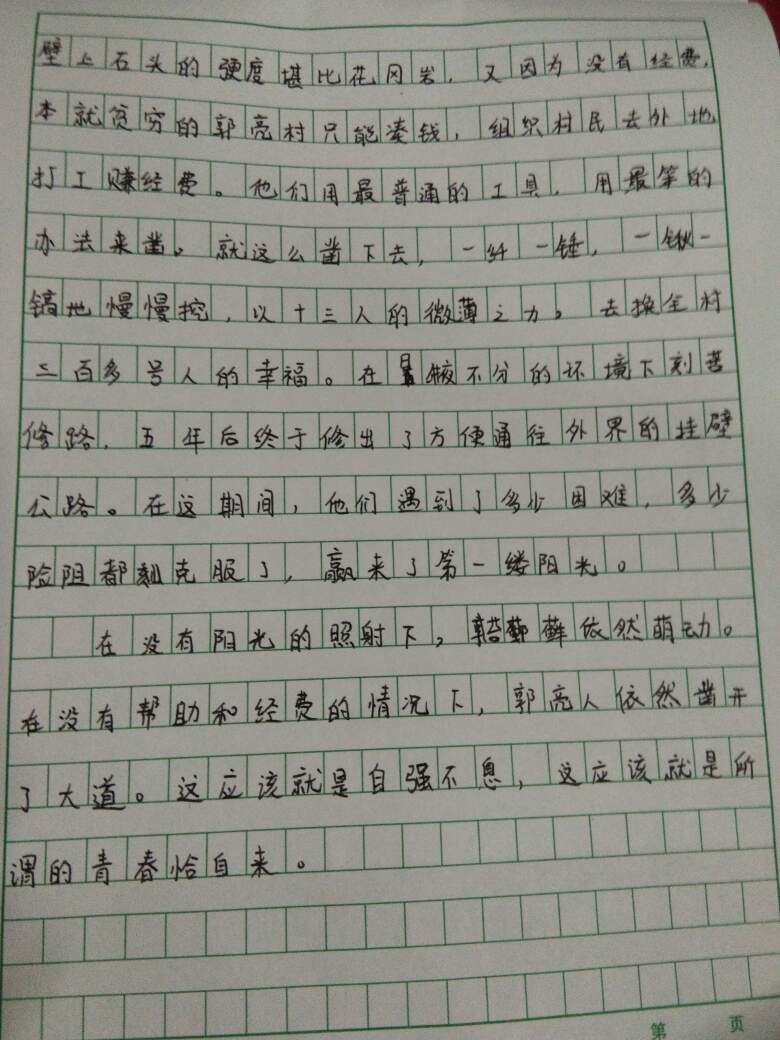 壁上石头的硬度堪比花冈岩，又因为没有经费，
本就贫穷的郭亮村只能凑钱，组织村民去外地
打工赚经费。他们用最普通的工具，用最笨的
办法来凿。就这么凿下去，一纤一锤，一锹一
镐地慢慢挖，以十三人的微薄之力，去换全村
三百多号人的幸福。在不分的环境下刻苦
修路，五年后终于修出了方便通往外界的挂壁
公路。在这期间，他们遇到了多少困难，多少
险阻都克服了，赢来了第一缕阳光。
在没有阳光的照射下，藓依然萌动。
在没有帮助和经费的情况下，郭亮人依然凿开
了大道。这应该就是自强不息，这应该就是所
谓的青春恰自来。
第 页